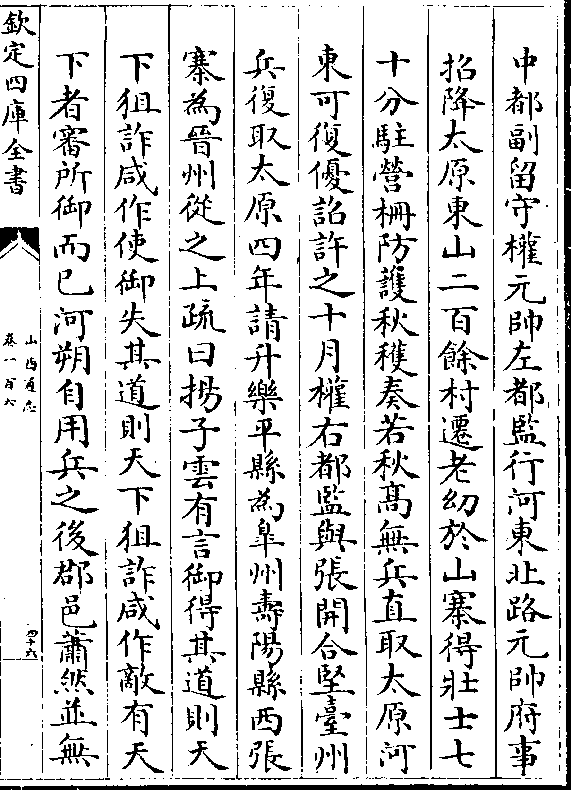 中都副留守權元帥左都監行河東北路元帥府事
招降太原東山二百餘村遷老幼於山寨得壯士七
十分駐營柵防護秋穫奏若秋髙無兵直取太原河
東可復優詔許之十月權右都監與張開合堅臺州
兵復取太原四年請升樂平縣為臯州壽陽縣西張
寨為晉州從之上疏曰揚子雲有言御得其道則天
下狙詐咸作使御失其道則天下狙詐咸作敵有天
下者審所御而已河朔自用兵之後郡邑蕭然並無
欽定四庫全書
山西通志
卷一百六
四十六